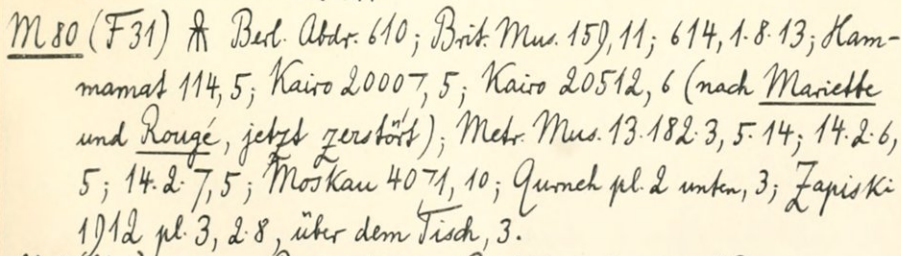 M 80 (F 31) 𓄟 Berl. Abdr. 610; Brit. Mus. 159, 11; 614, 1. 8. 13; Ham-
mamat 114, 5; Kairo 20007, 5; Kairo 20512, 6 (nach Mariette
und Rougé, jetzt zerstört); Metr. Mus. 13.182.3, 5. 14; 14.2.6,
5; 14.2.7, 5; Moskau 4071, 10; Qurneh pl. 2 unten, 3; Zapiski
1912 pl. 3, 2. 8, über dem Tisch, 3.